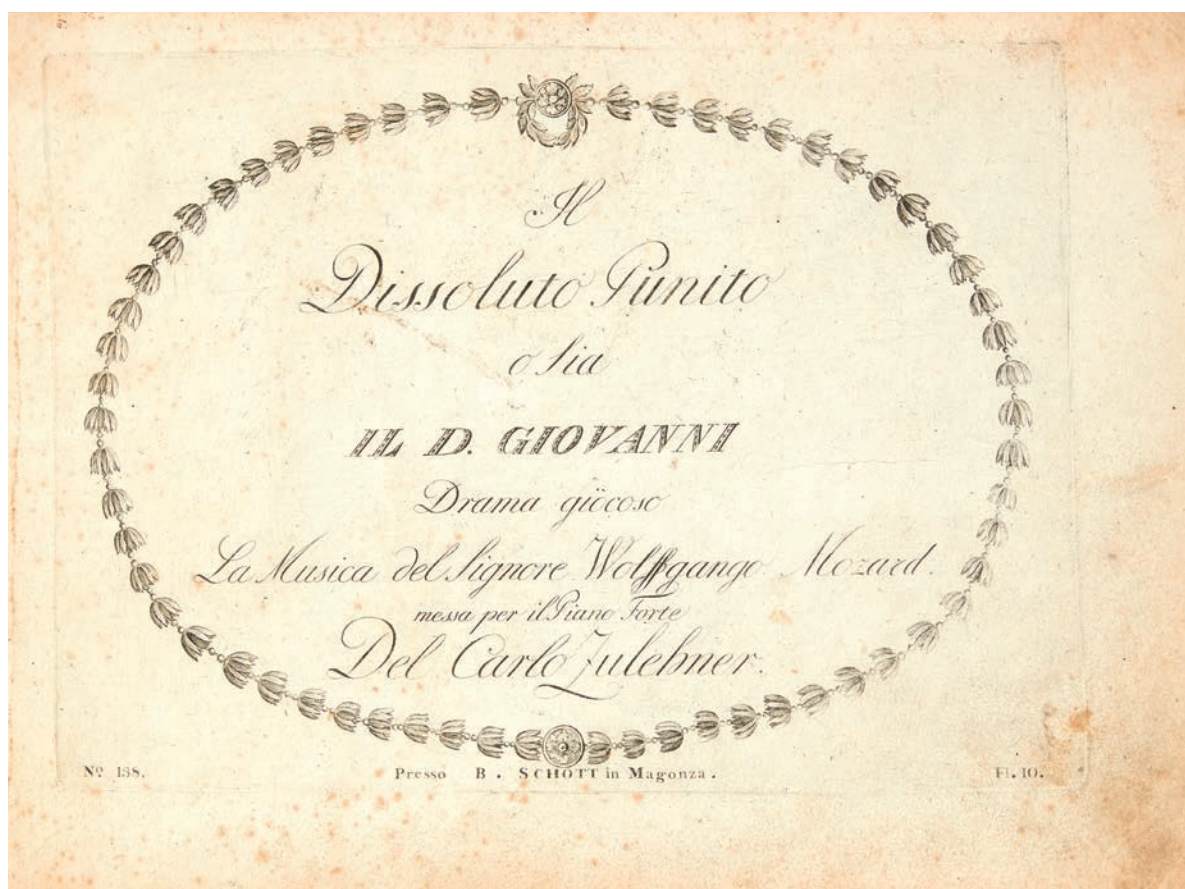 Il
Dissoluto Punito
o sia
IL D. GIOVANNI
Drama giocoso
La Musica del Signore Wolffgango Mozard.
messa per il Piano Forte
Del Carlo Zulehner.
Nº 138.
Presso B. SCHOTT in Magonza.
Fl. 10.